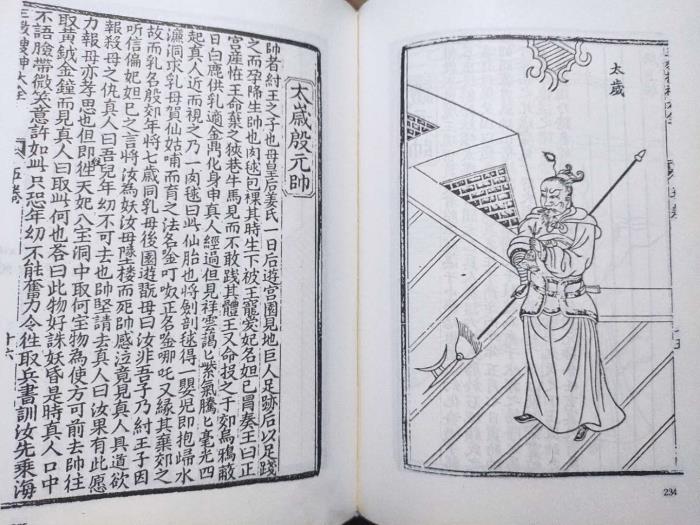 太歲
234
太歲殷元帥
帥者紂王之子也母皇后姜氏一日后遊宮園見地巨人足跡后以足踐
之而孕降生帥也肉毬包裸其時生下被王寵愛妃名妲巳冐奏王曰正
宮産恠王命棄之狹巷牛馬見而不敢踐其體王又命投之于郊烏鴉蔽
日白鹿供乳適金鼎化身申真人經過但見祥雲靄匕紫氣騰匕毫光四
起真人近而視之乃一肉毬曰此仙胎也將劍剖毬得一嬰兒即抱歸水
濂洞求乳母賀仙姑哺而育之法名唫叮呶正名唫哪吒又緣其棄郊之
故而乳名殷郊年將七歲同乳母後園遊翫母曰汝非吾子乃紂王子因
听信偏妃妲巳之言將汝為妖汝母墜樓而死帥感泣竟見真人具道欲
報殺母之仇真人曰吾兒年幼不可去也帥堅請去真人曰汝果有此愿
力報母亦孝思也但即徃天妃八主洞中取何宝物為使方可前去帥徃
取黃鉞金鐘而見真人曰取此何也荅曰此物好誅妖昏是時真人口中
不語臉帶微笑意許如此只恐年幼不能奮力令徃取兵書訓汝先乘海
三教搜神大全 五卷 十六